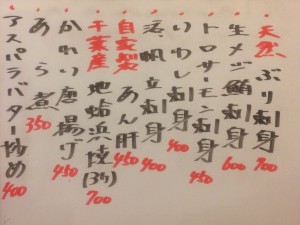 天然 ぶり刺身 700
生メジ鮪刺身 600
トロサーモン刺身 450
いわし刺身 400
活帆立刺身 400
自家製 あん肝 450
千葉産 地蛤浜焼(3ケ) 700
かれい唐揚げ 450
あら煮 350
アスパラバター炒め 400